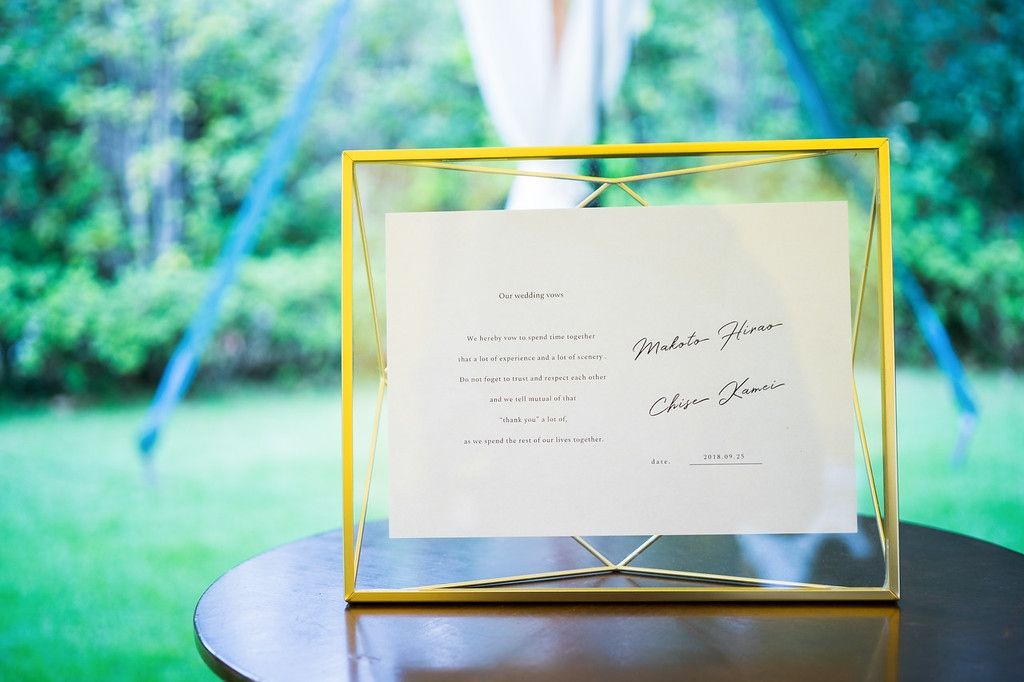 Our wedding vows
We hereby vow to spend time together
that a lot of experience and a lot of scenery.
Do not foget to trust and respect each other
and we tell mutual of that
"thank you" a lot of,
as we spend the rest of our lives together.
Makoto Hirao
Chise Kamei
date. 2018.09.25